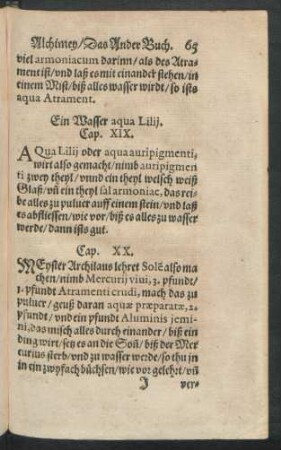 Alchimey/Das Ander Buch. 65
viel armoniacum darinn/als des Atra-
ment ist/vnd laß es mit einander stehen/in
einem Mist/biß alles wasser wirdt/so ists
aqua Atrament.
Ein Wasser aqua Lilij.
Cap. XIX.
AQua Lilij oder aqua auripigmenti,
wirt also gemacht/nimb auripigmen
ti zwey theyl/vnnd ein theyl welsch weiß
Glaß/vñ ein theyl sal armoniac, das rei-
be alles zu puluer auff einem stein/vnd laß
es abfliessen/wie vor/biß es alles zu wasser
werde/dann ists gut.
Cap. XX.
MEyster Archilaus lehret Solē also ma
chen/nimb Mercurij viui, 3. pfundt/
1. pfundt Atramenti crudi, mach das zu
puluer/geuß daran aquæ præparatæ, 2.
pfundt/vnd ein pfundt Aluminis jemi-
ni, das misch alles durch einander/biß ein
ding wirt/setz es an die Soñ/biß der Mer
curius sterb/vnd zu wasser werde/so thu jn
in ein zwyfach büchsen/wie vor gelehrt/vñ
J ver-